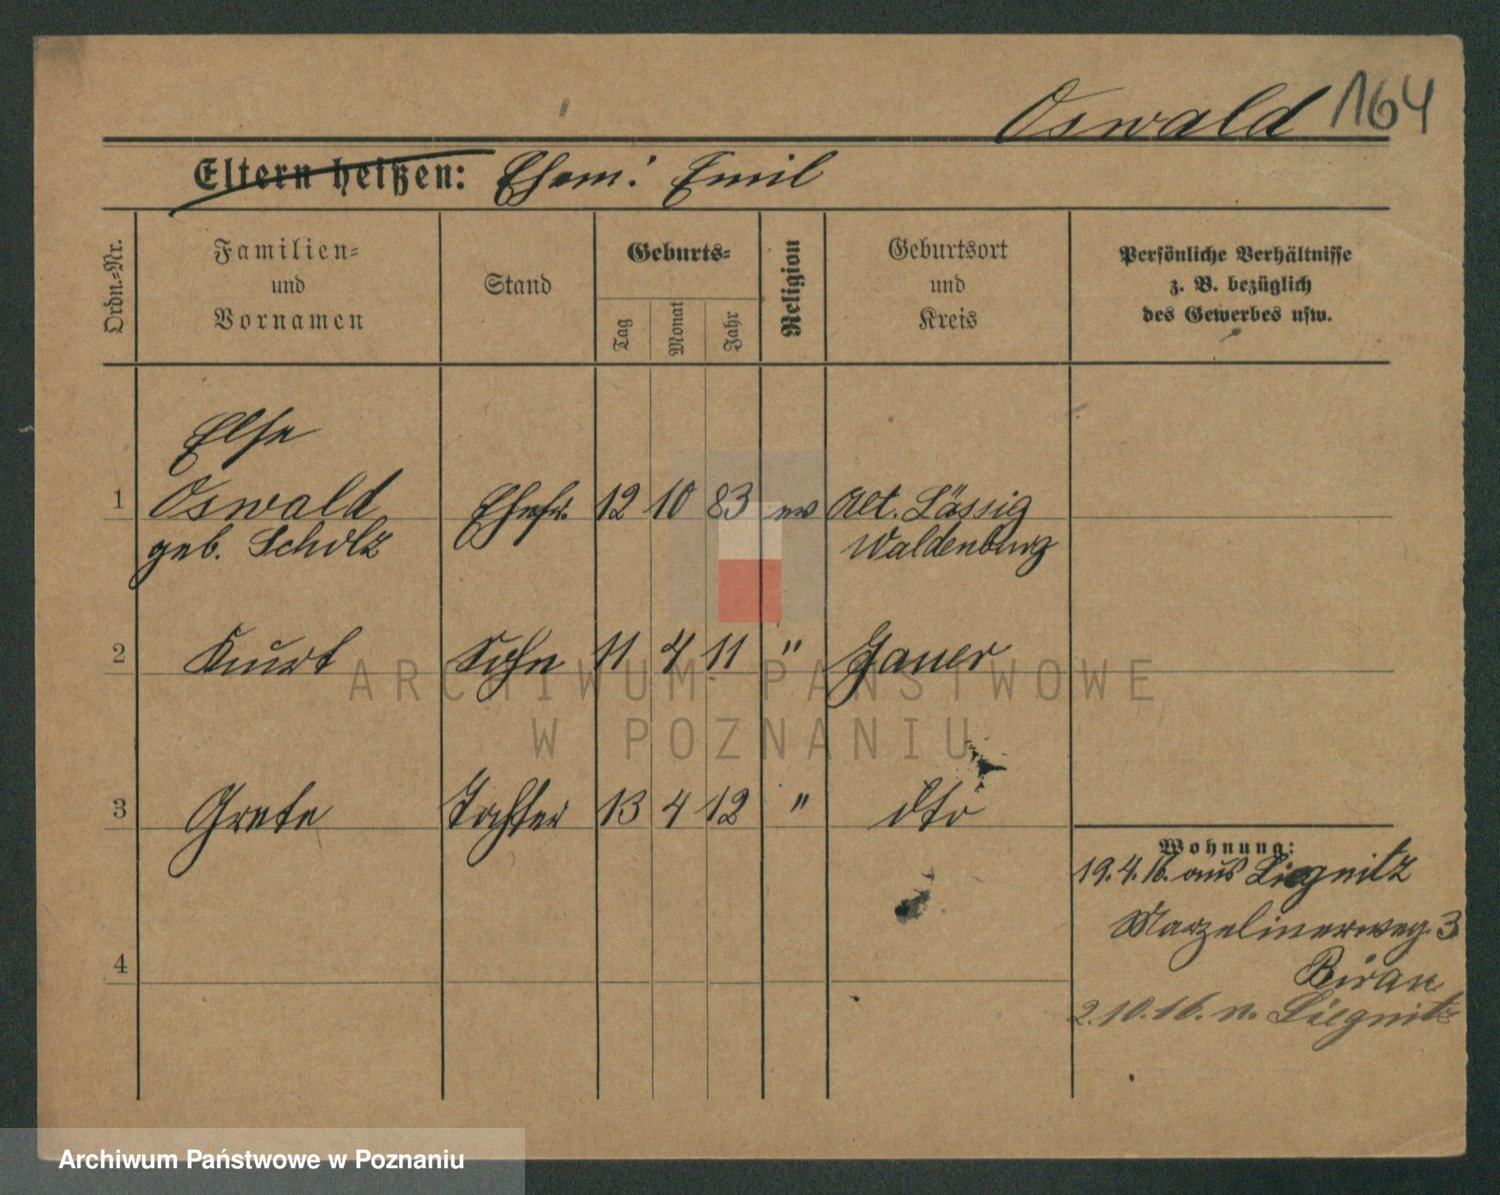 Oswald 164
Eltern heißen: Ehem: Emil
Ordn.-Nr.
Familien-
und
Vornamen
Stand
Geburts-
Tag
Monat
Jahr
Religion
Geburtsort
und
Kreis
Persönliche Verhältnisse
z. B. bezüglich
des Gewerbes usw.
Else
1 Oswald Ehefr. 12 10 83 ev Alt. Lässig
geb. Scholz Waldenburg
2 Kurt Sohn 11 4 11 " Jauer
3 Grete Tochter 13 4 12 " dto
Wohnung:
19.4.16. aus Liegnitz
Marzelinerweg 3
4
2.10.16. n. Liegnitz
ARCHIWUM PAŃSTWOWE
W POZNANIU
Archiwum Państwowe w Poznaniu